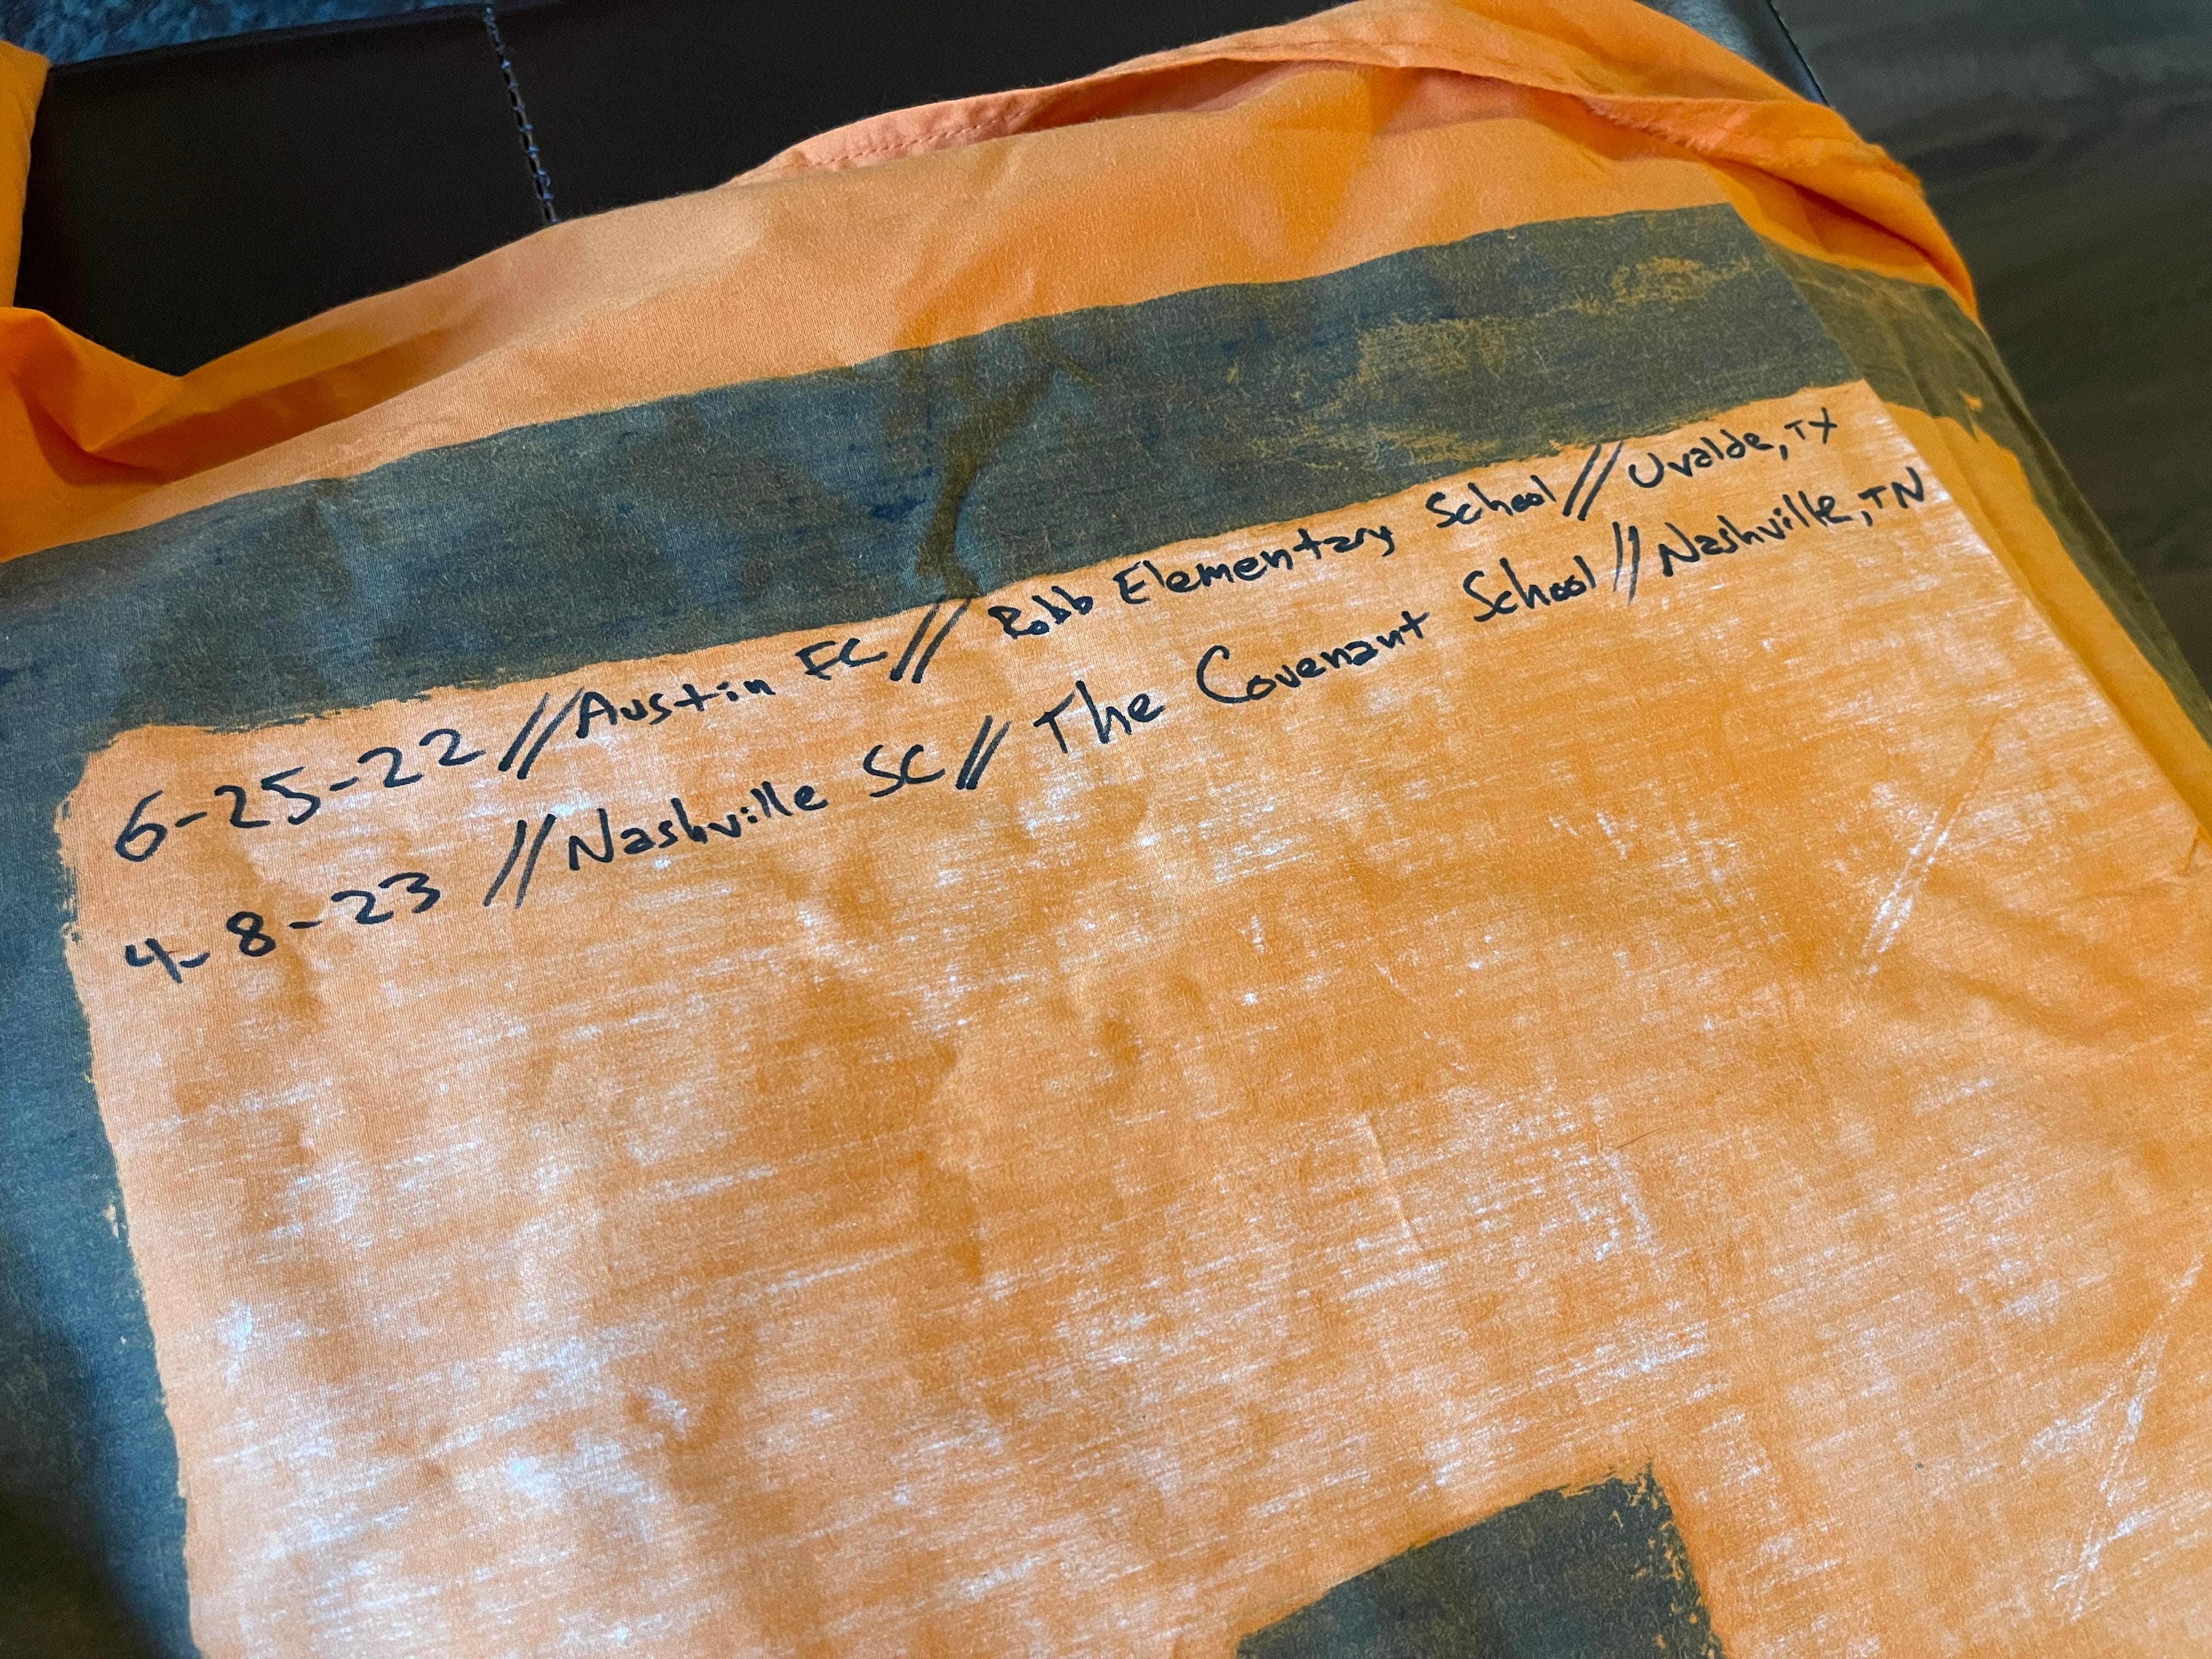 6-25-22 // Austin FC // Robb Elementary School // Uvalde, TX
4-8-23 // Nashville SC // The Covenant School // Nashville, TN